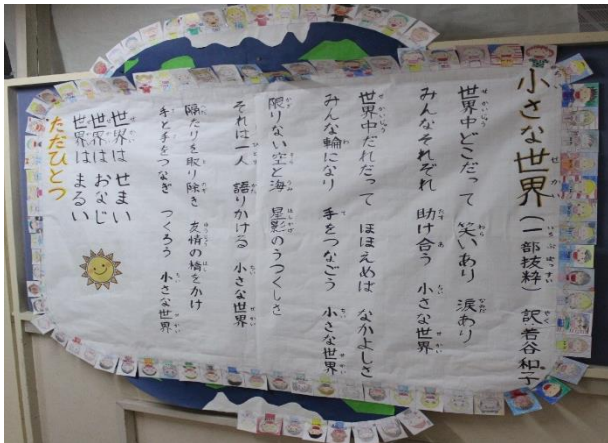 小さな世界（一部抜粋） 訳 若谷和子
世界中どこだって 笑いあり 涙あり
みんなそれぞれ 助け合う 小さな世界
世界中だれだって ほほえめば なかよしさ
みんな輪になり 手をつなごう 小さな世界
限りない空と海 星影のうつくしさ
それは一人 語りかける 小さな世界
隔たりを取り除き 友情の橋をかけ
手と手をつなぎ つくろう 小さな世界
世界は せまい
世界は おなじ
世界は まるい
ただひとつ